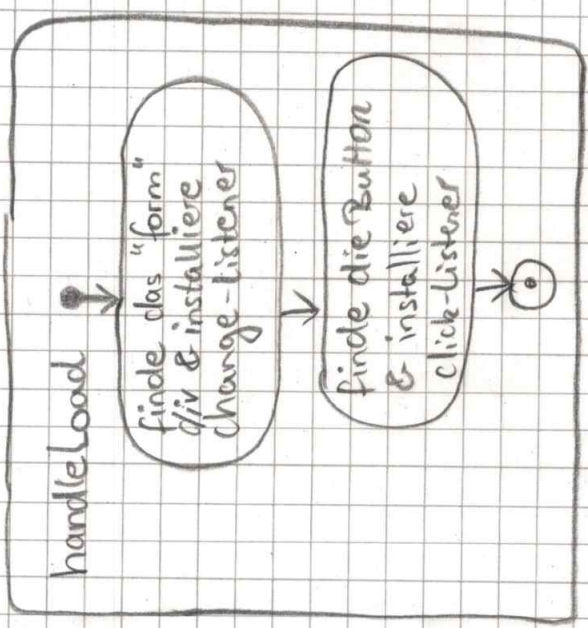 handleLoad
finde das "form"
div & installiere
change-listener
finde die Button
& installiere
click-listener